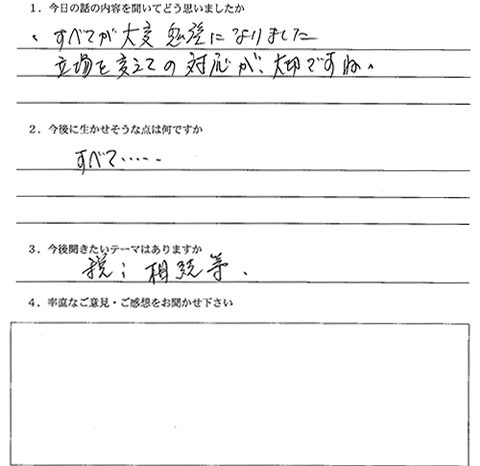 1．今日の話の内容を聞いてどう思いましたか
、すべてが大変勉強になりました
立場を変えての対応が、大切ですね。
2．今後に生かせそうな点は何ですか
すべて‥‥‥
3．今後聞きたいテーマはありますか
税；相続等、
4．率直なご意見・ご感想をお聞かせ下さい